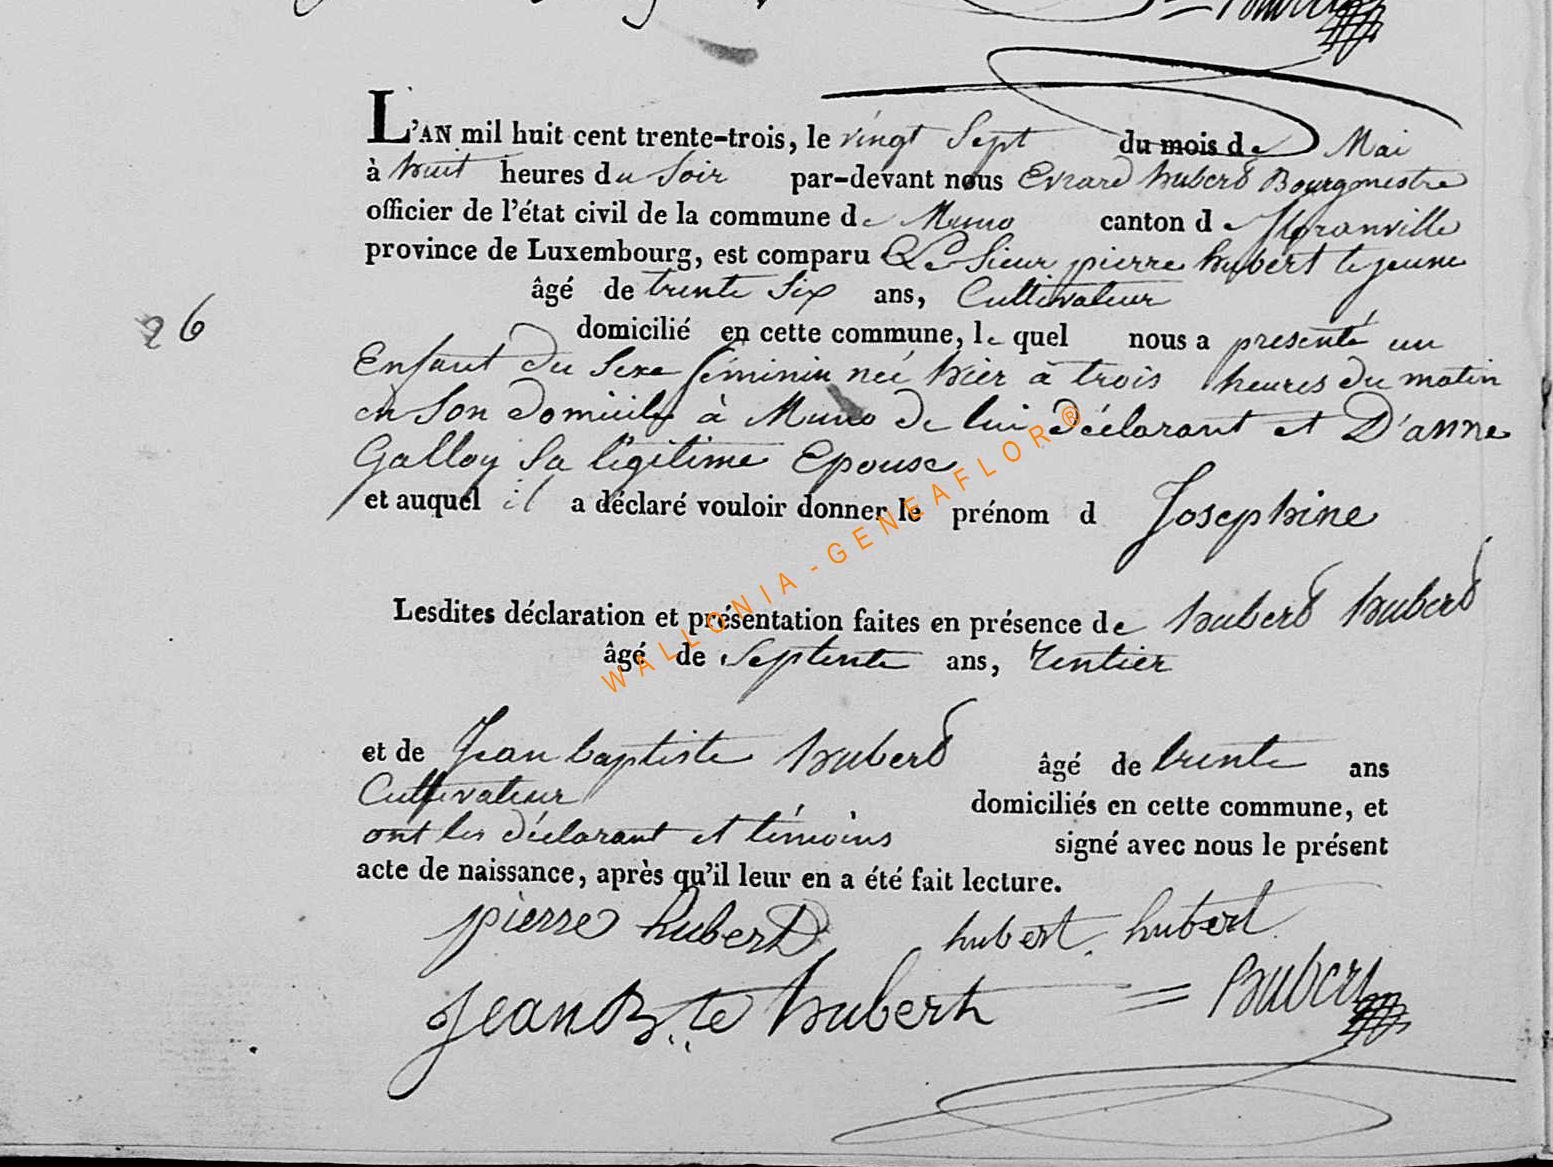 L'AN mil huit cent trente-trois, le vingt Sept du mois de Mai
à huit heures du Soir par-devant nous Evrard hubert Bourgmestre
officier de l'état civil de la commune de Muno canton de floranville
province de Luxembourg, est comparu Le Sieur pierre hubert le jeune
âgé de trente Six ans, Cultivateur
26
domicilié en cette commune, le quel nous a presenté un
Enfant du Sexe féminin neé hier à trois heures du matin
en Son domicile à Muno de lui déclarant et D'anne
Galloy Sa légitime Epouse
et auquel il a déclaré vouloir donner le prénom d Josephine
Lesdites déclaration et présentation faites en présence de hubert hubert
âgé de Septente ans, rentier
et de Jean baptiste hubert âgé de trente ans
Cultivateur domiciliés en cette commune, et
ont les déclarant et témoins signé avec nous le présent
acte de naissance, après qu'il leur en a été fait lecture.
pierre hubert hubert hubert
Jean Bte hubert = hubert
WALLONIA - GENEAFLOR ®